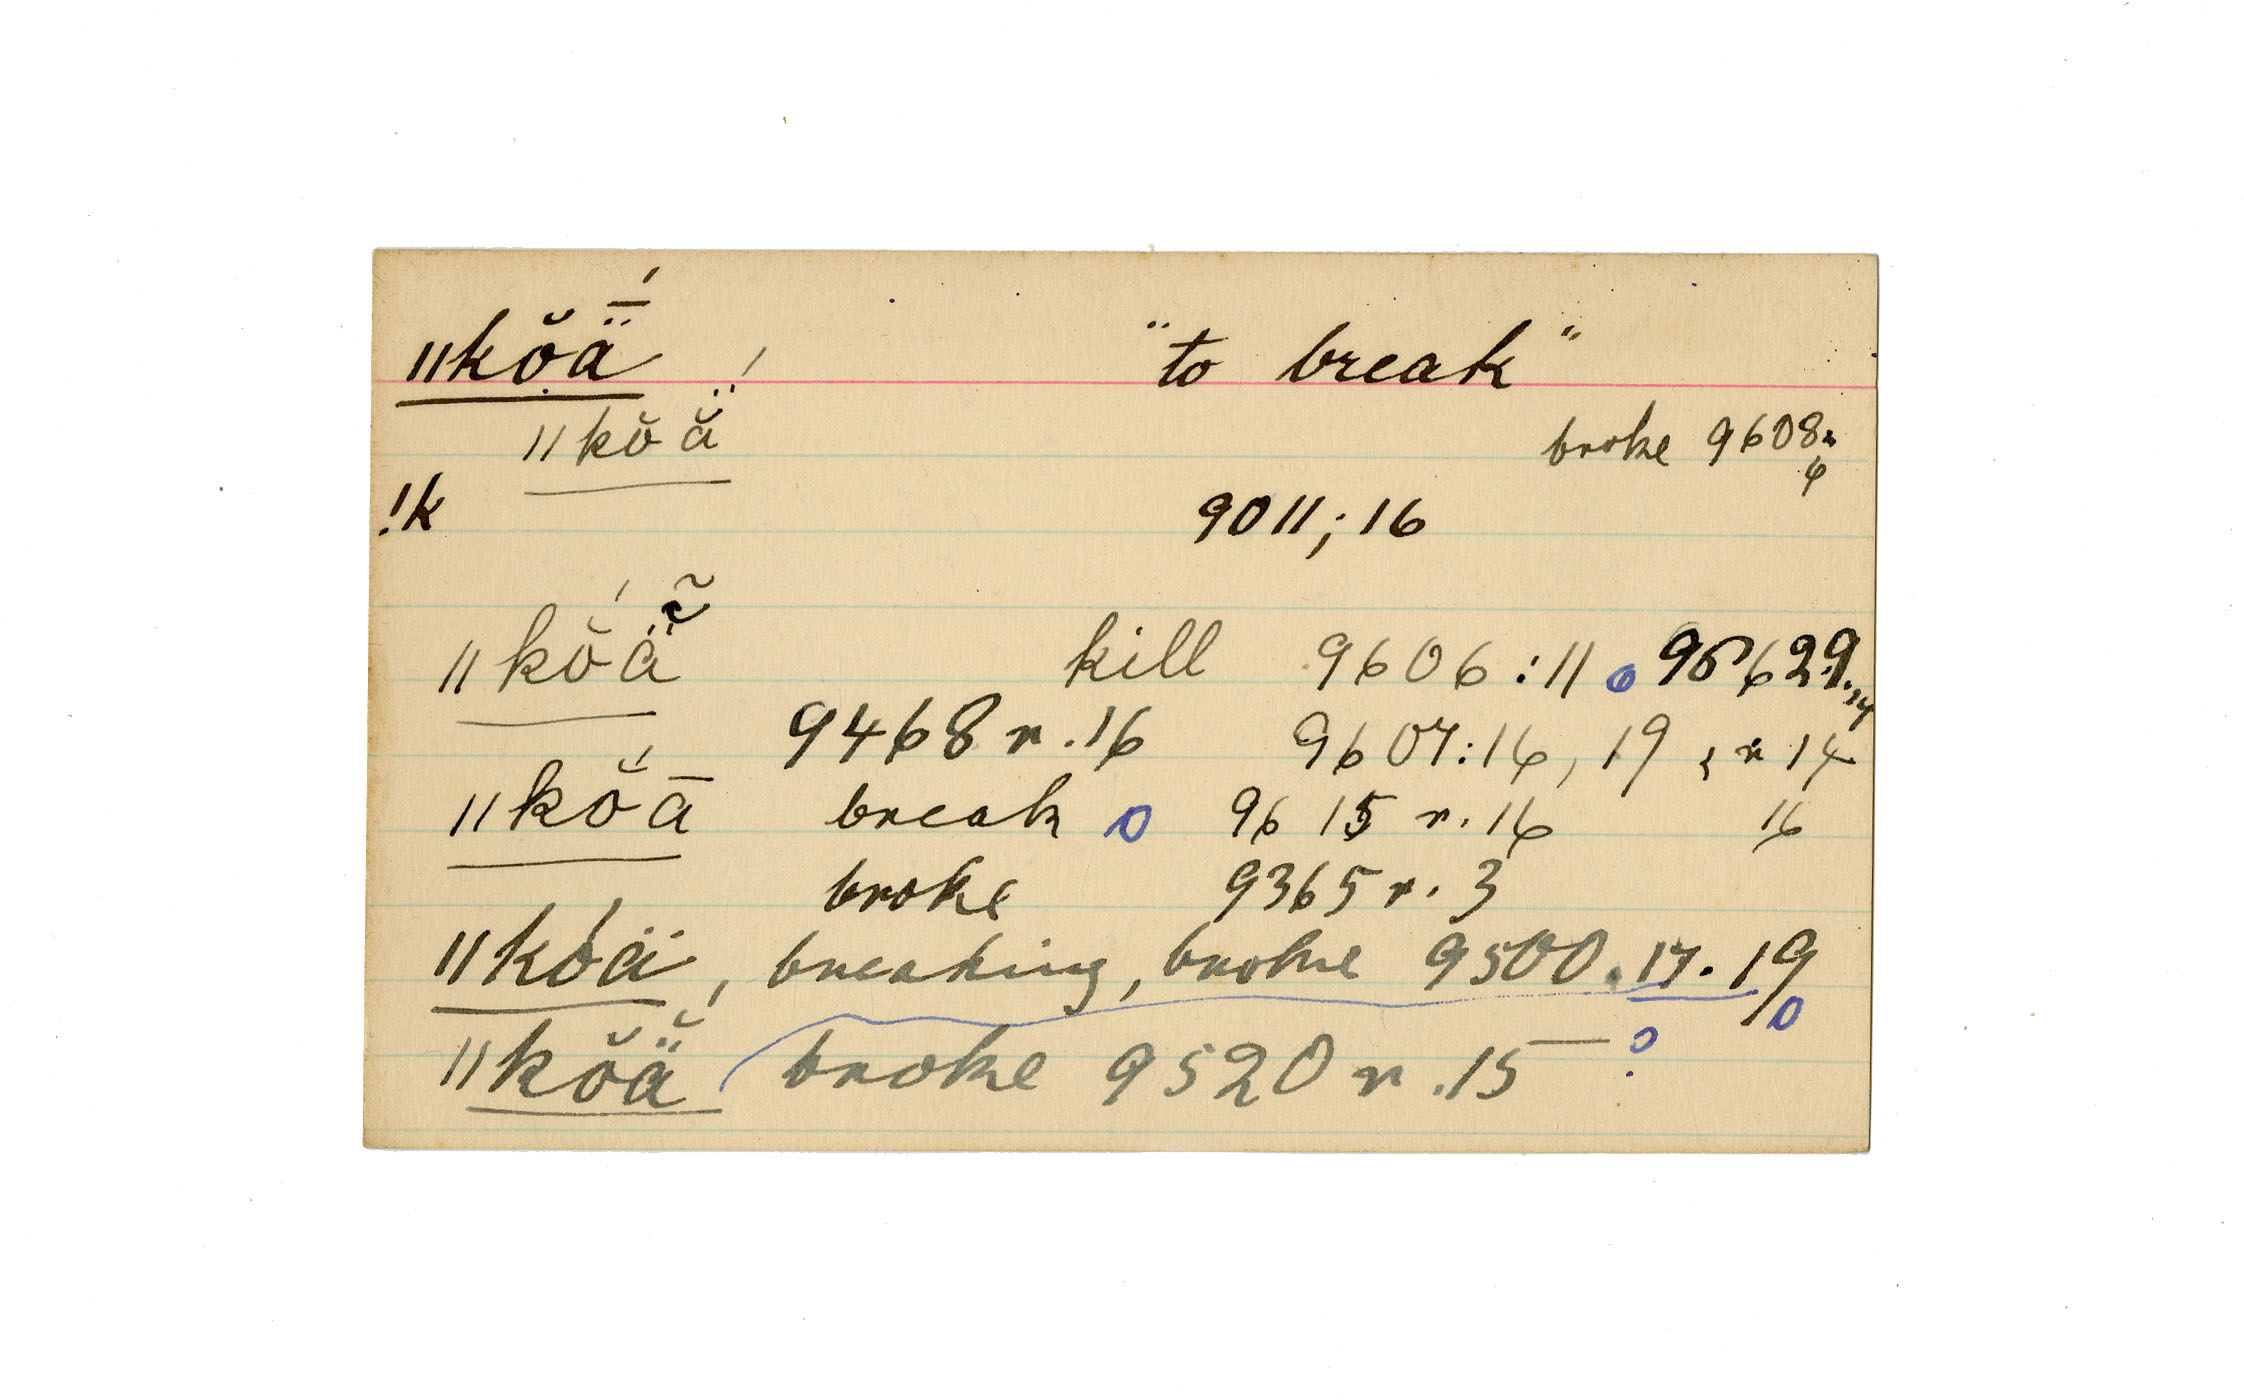 ǁkọ̆ǟ́ "to break"
ǁkŏä̆́ broke 9608r. 6
!k 9011; 16
ǁkŏ́ä̃ kill 9606:11
9468 r. 16 9607:16, 19, r 14
ǁkŏ́ā break 9615 r. 16 16
broke 9365 r. 3
ǁkóä, breaking, broke 9500. 17. 19
ǁkŏä̆́ broke 9520 r. 15 ?